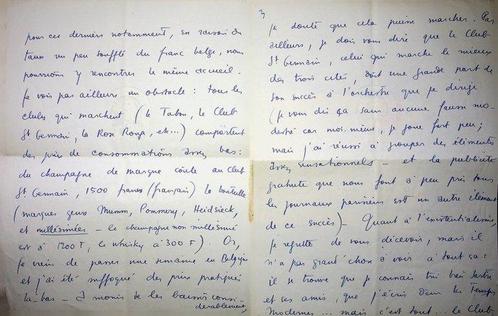 pour ces derniers notamment, en raison du
taux un peu soufflé du franc belge, nous
pourrions y rencontrer le même accueil.
Je vois par ailleurs un obstacle : tous les
clubs qui marchent (le Tabou, le Club
St Germain, le Rose Rouge, etc...) comportent
des prix de consommations assez bas :
du champagne de marque coûte au Club
St Germain, 1500 francs (français) la bouteille
(marques genre Mumm, Pommery, Heidsieck,
et millésimées - le champagne non millésimé
est à 1200 F, le whisky à 300 F). Or,
je viens de passer une semaine en Belgique
et j'ai été suffoqué des prix pratiqués
là-bas - A moins de les baisser consi-
dérablement,
3
je doute que cela puisse marcher. Par
ailleurs, je dois vous dire que le Club
St Germain, celui qui marche le mieux
des trois cités, doit une grande part de
son succès à l'orchestre que je dirige
(je vous dis ça sans aucune fausse mo-
destie car moi-même, je joue fort peu ;
mais j'ai réussi à grouper des éléments
assez sensationnels - et la publicité
gratuite que nous font à peu près tous
les journaux parisiens est un autre élément
de ce succès) - Quant à l'existentialisme,
je regrette de vous décevoir, mais il
n'a pas grand'chose à voir à tout ça :
il se trouve que je connais très bien Sartre
et ses amis, que j'écris dans les Temps
Modernes... mais c'est tout... le Club